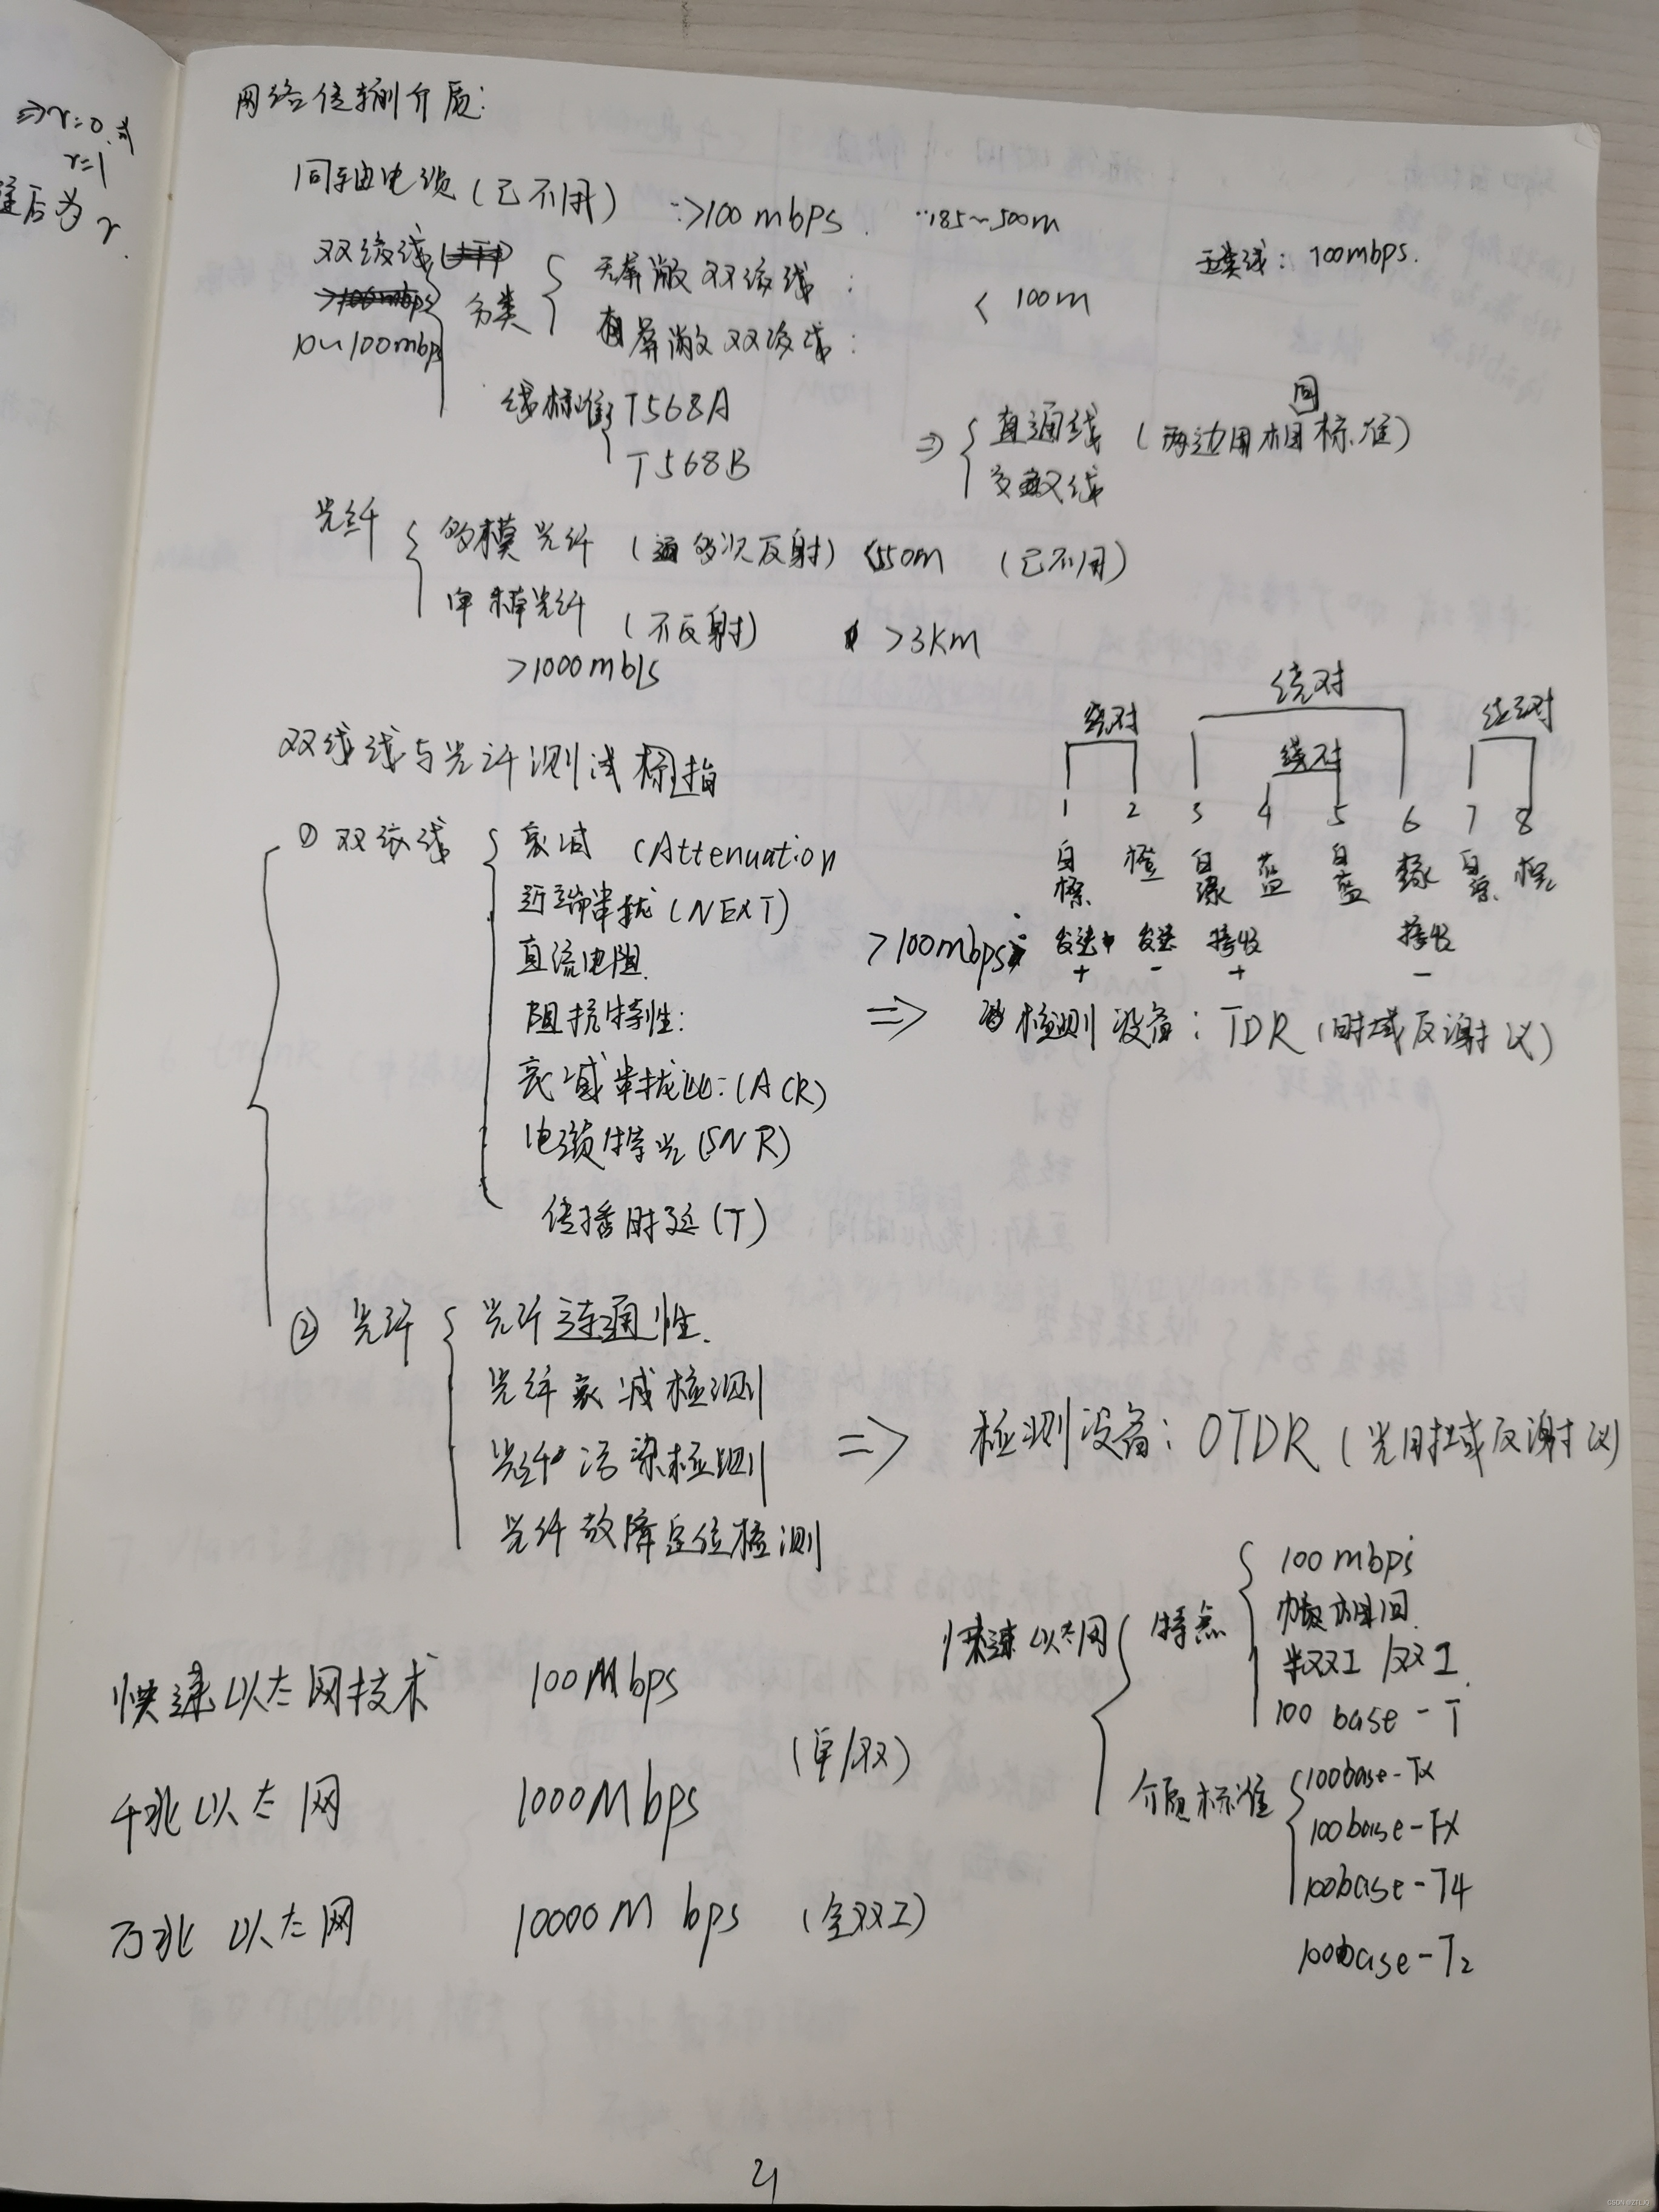 ⇒r=0.或
r=1
后为r.
网络传输介质:
同轴电缆(已不用) :>100mbps. ··185~500m
双绞线
10~100mbps
分类
无屏蔽双绞线:
有屏蔽双绞线:
< 100m
五类线: 100mbps.
线标准
T568A
T568B
⇒ 直通线 (两边用相同标准)
交叉线
光纤
多模光纤 (多次反射) <550m (已不用)
单模光纤 (不反射) >3Km
>1000mb/s
双绞线与光纤测试标指
绕对 绕对 绕对
绕对
1 2 3 4 5 6 7 8
白橙 橙 白绿 蓝 白蓝 绿 白棕 棕
>100mbps: 发送+ 发送- 接收+ 接收-
① 双绞线
衰减 (Attenuation
近端串扰(NEXT)
直流电阻.
阻抗特性:
衰减串扰比:(ACR)
电缆特光(SNR)
传播时延(T)
⇒ 检测设备: TDR (时域反射仪)
② 光纤
光纤连通性.
光纤衰减检测
光纤污染检测
光纤故障定位检测
⇒ 检测设备: OTDR (光时域反射仪)
快速以太网技术 100Mbps
千兆以太网 1000Mbps (单/双)
万兆以太网 10000M bps (全双工)
快速以太网
特点
100mbps
帧相同.
半双工/双工
100 base-T
介质标准
100base-Tx
100base-FX
100base-T4
100base-T2
21
CSDN @ZTLJQ